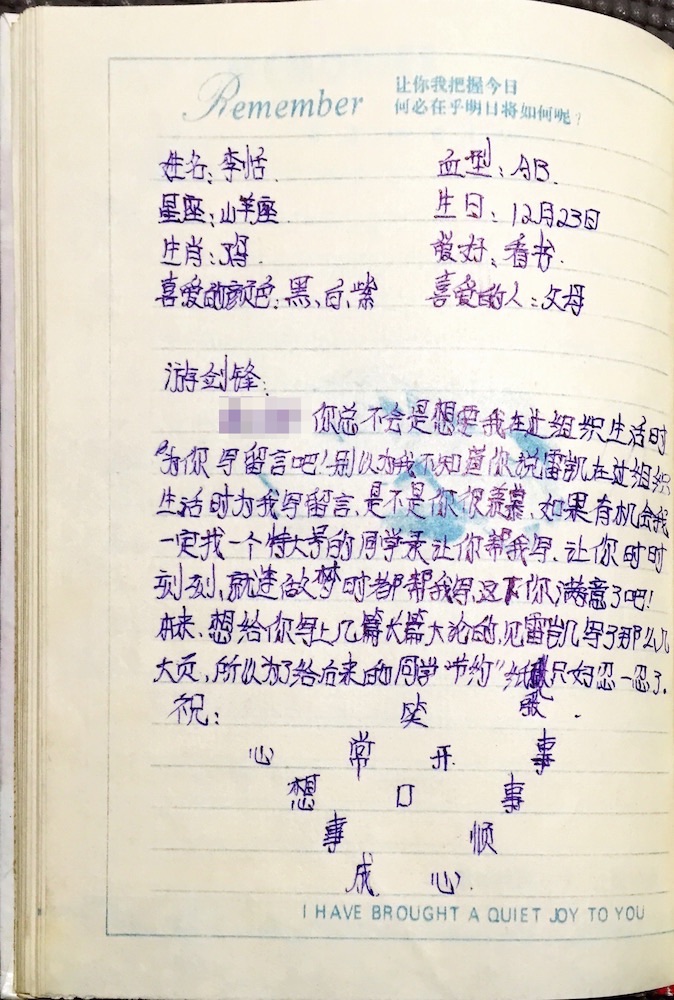 Remember
让你我把握今日
何必在乎明日将如何呢?
姓名:李恬. 血型:AB.
星座:山羊座 生日:12月23日
生肖:鸡. 爱好:看书.
喜爱的颜色:黑、白、紫 喜爱的人:父母
游剑锋:
你总不会是想要我在过组织生活时
为你写留言吧!别以为我不知道你说雷凯在过组织
生活时为我写留言,是不是你很羡慕,如果有机会我
一定找一个特大号的同学录让你帮我写,让你时时
刻刻,就连做梦时都帮我写,这下你满意了吧!
本来,想给你写上几篇长篇大论的,见雷凯写了那么几
大页,所以为了给后来的同学"节约"纸 只好忍一忍了.
祝: 笑
心 常 开 事
想 口 事
事 顺
成 心.
I HAVE BROUGHT A QUIET JOY TO YOU